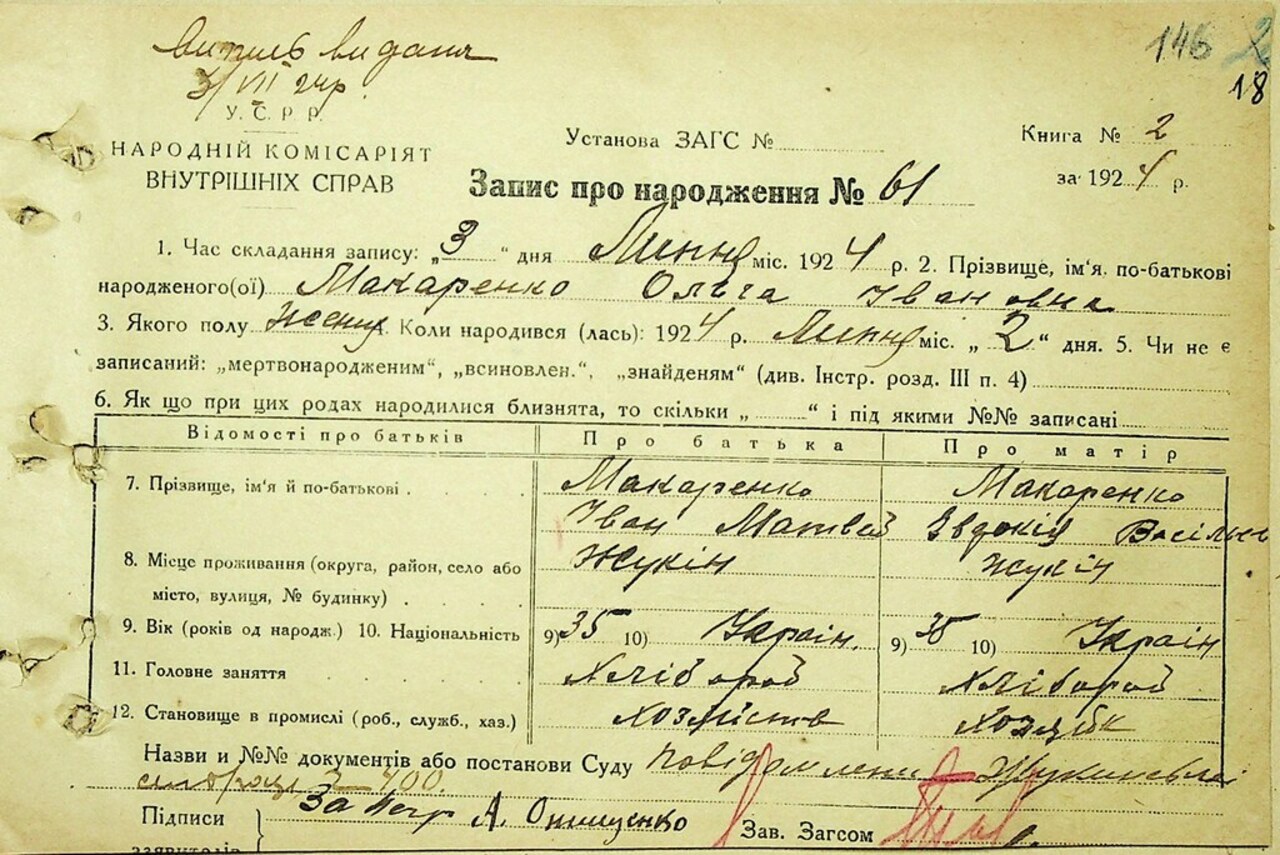 146
18
випись видана
3/VII 24 р.
У. С. Р. Р.
НАРОДНІЙ КОМІСАРІЯТ
ВНУТРІШНІХ СПРАВ
Установа ЗАГС №
Книга № 2
за 1924 р.
Запис про народження № 61
1. Час складання запису: „3“ дня Липня міс. 1924 р. 2. Прізвище, ім'я, по-батькові
народженого(ої) Макаренко Ольга Івановна
3. Якого полу женщ. Коли народився (лась): 1924 р. Липня міс. „2“ дня. 5. Чи не є
записаний: „мертвонародженим“, „всиновлен.“, „знайденям“ (див. Інстр. розд. III п. 4)
6. Як що при цих родах народилися близнята, то скільки „ “ і під якими №№ записані
Відомості про батьків Про батька Про матір
7. Прізвище, ім'я й по-батькові Макаренко Макаренко
Іван Матвей Євдокія Васільев
8. Місце проживання (округа, район, село або Жукін Жукін
місто, вулиця, № будинку)
9. Вік (років од народж.) 10. Національність 9) 35 10) Украін. 9) 35 10) Украін
11. Головне заняття Хліборой Хліборой
12. Становище в промислі (роб., служб., хаз.)
Назви и №№ документів або постанови Суду повідомлення Жукинської
сільради № 400.
Підписи За негр А. Онищенко Зав. Загсом
заявителів